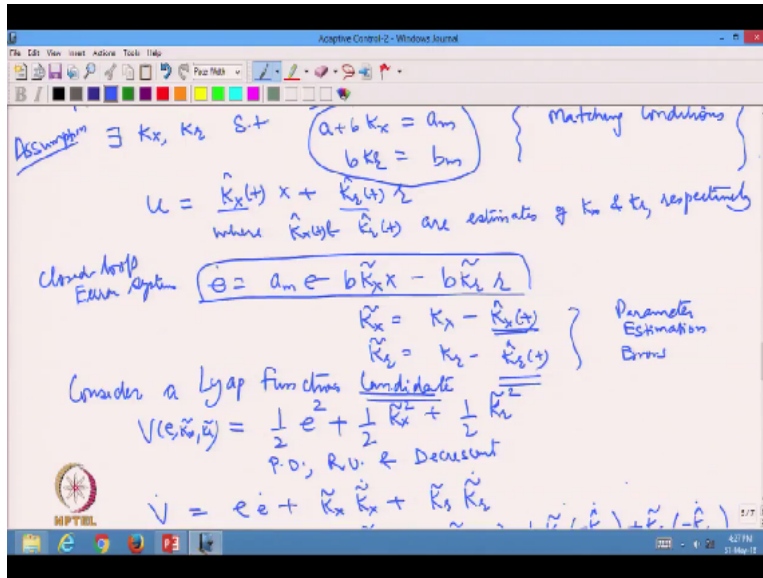 Adaptive Control-2 - Windows Journal
File Edit View Insert Actions Tools Help
Page Width
B I
Assumption ∃ Kx, Kr s.t a+b Kx = am { Matching Conditions }
b Kr = bm
u = K̂x(t) x + K̂r(t) r
where K̂x(t) & K̂r(t) are estimates of Kx & Kr, respectively
Closed-loop
Error System ė = am e - b K̃x x - b K̃r r
K̃x = Kx - K̂x(t) } Parameter
K̃r = Kr - K̂r(t) Estimation
Errors
Consider a Lyap Function Candidate
V(e, K̃x, K̃r) = 1/2 e² + 1/2 K̃x² + 1/2 K̃r²
P.D., R.U. & Decrescent
V̇ = e ė + K̃x K̃̇x + K̃r K̃̇r
NPTEL
5/7
4:27 PM
31-May-18